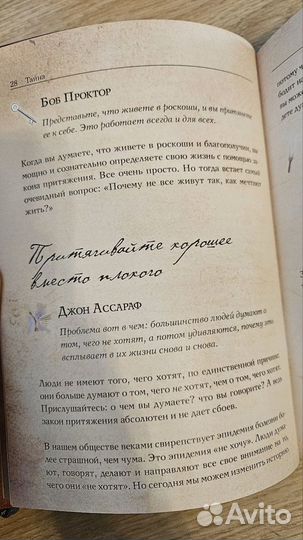 28 Тайна
Боб Проктор
Представьте, что живете в роскоши, и вы притянете
ее к себе. Это работает всегда и для всех.
Когда вы думаете, что живете в роскоши и благополучии, вы
мощно и сознательно определяете свою жизнь с помощью за
кона притяжения. Все очень просто. Но тогда встает самый
очевидный вопрос: «Почему не все живут так, как мечтают
жить?»
Притягивайте хорошее
вместо плохого
Джон Ассараф
Проблема вот в чем: большинство людей думают о
том, чего не хотят, а потом удивляются, почему это
всплывает в их жизни снова и снова.
Люди не имеют того, чего хотят, по единственной причине:
они больше думают о том, чего не хотят, чем о том, чего хотят.
Прислушайтесь: о чем вы думаете? что вы говорите? А ведь
закон притяжения абсолютен и не дает сбоев.
В нашем обществе веками свирепствует эпидемия болезни бо
лее страшной, чем чума. Это эпидемия «не хочу». Люди дума
ют, говорят, делают и направляют все свое внимание на то,
чего они «не хотят». Но сегодня мы можем изменить историю
потому ч
бодит ис
вы може
лете ду
Avito